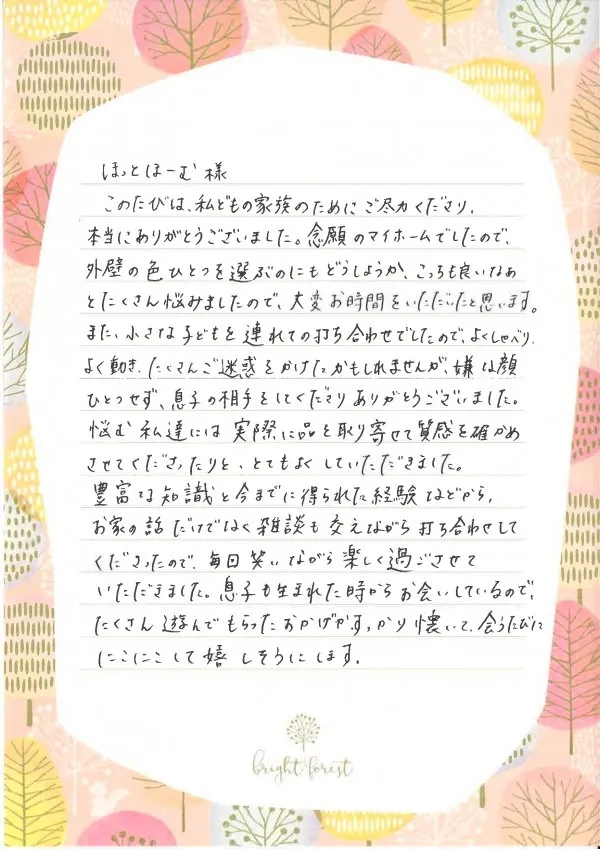 ほっとほーむ 様
このたびは、私どもの家族のために ご尽力くださり、
本当にありがとうございました。念願のマイホームでしたので、
外壁の色ひとつを選ぶのにもどうしようか、こっちも良いなぁ
とたくさん悩みましたので、大変お時間をいただいたと思います。
また、小さな子どもを連れての打ち合わせでしたので、よくしゃべり、
よく動き、たくさんご迷惑をかけたかもしれませんが、嫌な顔
ひとつせず、息子の相手をしてくださりありがとうございました。
悩む私達には実際に品を取り寄せて質感を確かめ
させてくださったりと、とてもよくしていただきました。
豊富な知識と今までに得られた経験などから、
お家の話だけでなく雑談も交えながら打ち合わせして
くださったので、毎回笑いながら楽しく過ごさせて
いただきました。息子も生まれた時からお会いしているので、
たくさん遊んでもらったおかげかすっかり懐いて、会うたびに
にこにこして嬉しそうにします。
bright forest